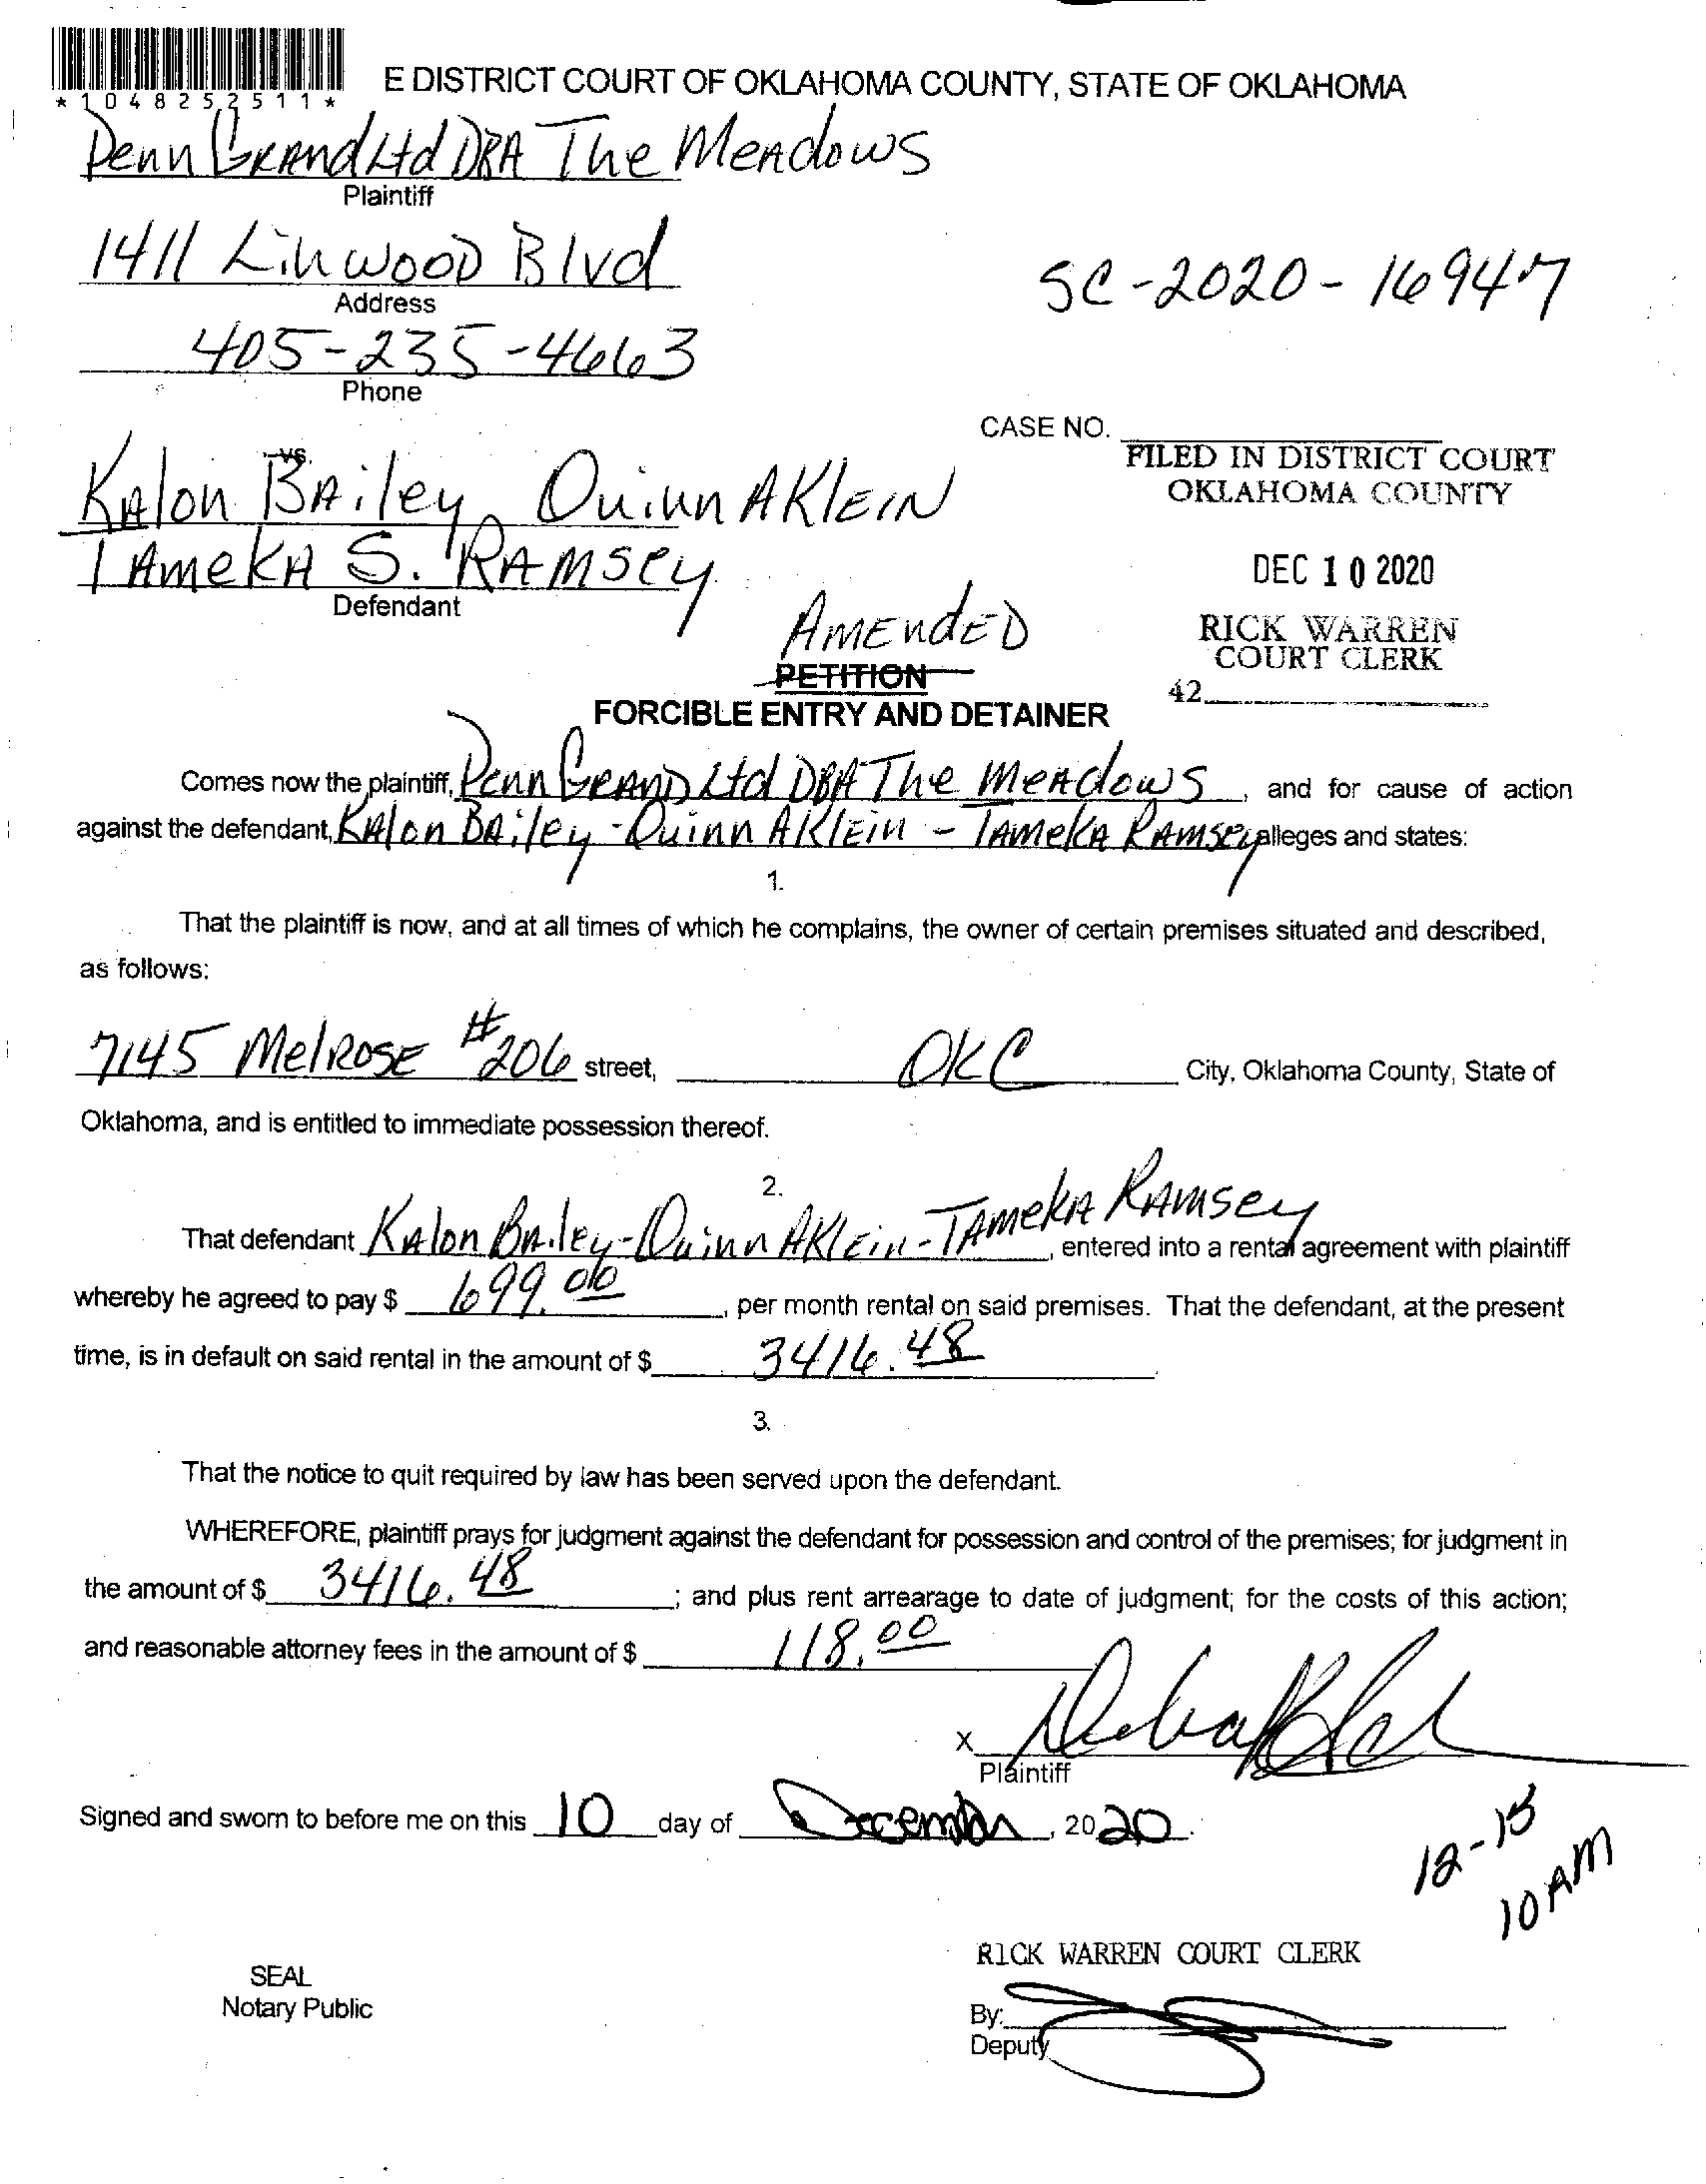 *1048252511*
E DISTRICT COURT OF OKLAHOMA COUNTY, STATE OF OKLAHOMA
Penn Grand Ltd DBA The Meadows
Plaintiff
1411 Linwood Blvd
Address
SC-2020-16947
405-235-4663
Phone
CASE NO.
vs.
FILED IN DISTRICT COURT
OKLAHOMA COUNTY
Kalon Bailey, Quinn AKlein
Tameka S. Ramsey
Defendant
DEC 10 2020
Amended
RICK WARREN
COURT CLERK
PETITION
42
FORCIBLE ENTRY AND DETAINER
Comes now the plaintiff, Penn Grand Ltd DBA The Meadows, and for cause of action
against the defendant, Kalon Bailey - Quinn AKlein - Tameka Ramsey alleges and states:
1.
That the plaintiff is now, and at all times of which he complains, the owner of certain premises situated and described,
as follows:
7145 Melrose #206 street, OKC City, Oklahoma County, State of
Oklahoma, and is entitled to immediate possession thereof.
2.
That defendant Kalon Bailey - Quinn AKlein - Tameka Ramsey, entered into a rental agreement with plaintiff
whereby he agreed to pay $ 699.00, per month rental on said premises. That the defendant, at the present
time, is in default on said rental in the amount of $ 3416.48
3.
That the notice to quit required by law has been served upon the defendant.
WHEREFORE, plaintiff prays for judgment against the defendant for possession and control of the premises; for judgment in
the amount of $ 3416.48; and plus rent arrearage to date of judgment; for the costs of this action;
and reasonable attorney fees in the amount of $ 118.00
X
Plaintiff
Signed and sworn to before me on this 10 day of December, 2020.
10 AM
RICK WARREN COURT CLERK
SEAL
Notary Public
By:
Deputy